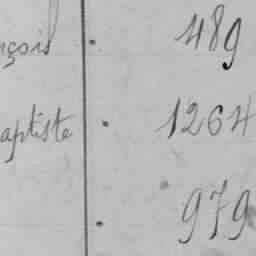 nçois . 489
aptiste . 1264
. 979